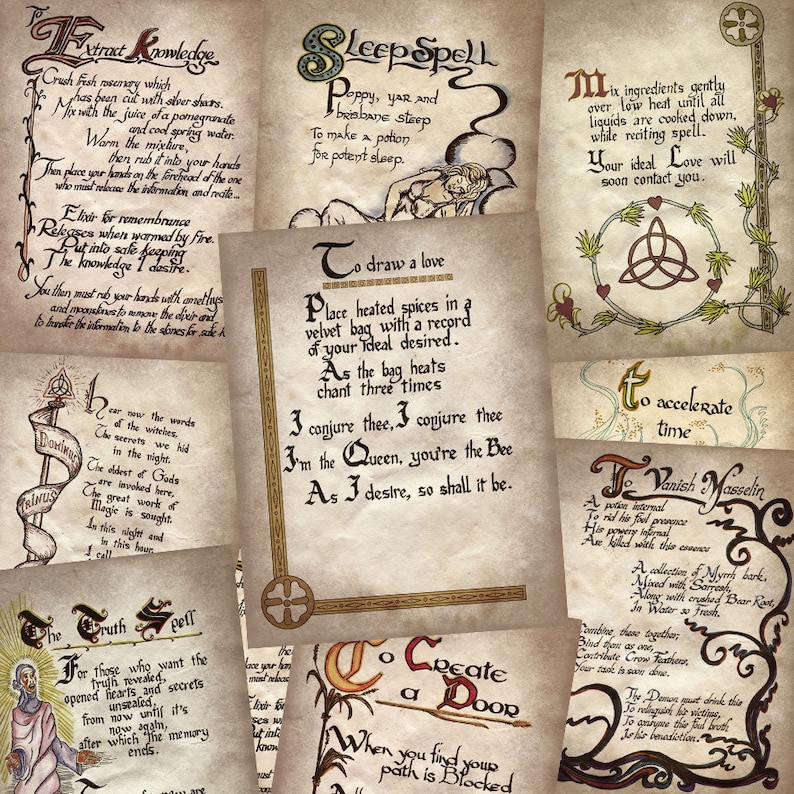 To
Extract Knowledge
Crush fresh rosemary which
has been cut with silver shears.
Mix with the juice of a pomegranate
and cool spring water.
Warm the mixture,
then rub it into your hands
Then place your hands on the forehead of the one
who must release the information and recite...
Elixir for remembrance
Releases when warmed by fire.
Put into safe keeping
The knowledge I desire.
You then must rub your hands with amethys
and moonstones to remove the elixir and
to transfer the information to the stones for safe k
Sleep Spell
Poppy, yar and
brisbane steep
To make a potion
for potent sleep.
Mix ingredients gently
over low heat until all
liquids are cooked down,
while reciting spell.
Your ideal Love will
soon contact you.
To draw a love
Place heated spices in a
velvet bag with a record
of your ideal desired.
As the bag heats
chant three times
I conjure thee, I conjure thee
I'm the Queen, you're the Bee
As I desire, so shall it be.
DOMINUS
TRINUS
Hear now the words
of the witches,
The secrets we hid
in the night.
The oldest of Gods
are invoked here,
The great work of
Magic is sought.
In this night and
in this hour,
I call
to accelerate
time
To Vanish Masselin
A potion internal
To rid his foul presence
His powers infernal
Are killed with this essence
A collection of Myrrh bark,
Mixed with Sarresh,
Along with crushed Bear Root,
In Water so fresh.
Combine these together,
Bind them as one,
Contribute Crow Feathers,
Your task is soon done.
The Demon must drink this
To relinquish his victims,
To consume this foul broth
Is his benediction.
The Truth Spell
For those who want the
truth revealed,
opened hearts and secrets
unsealed,
from now until it's
now again,
after which the memory
ends.
now are
Place you
has been
Mix with
then
Then place your hands
who must release
Elixir
Releases
Put into
The know
To Create
a Door
When you find your
path is Blocked